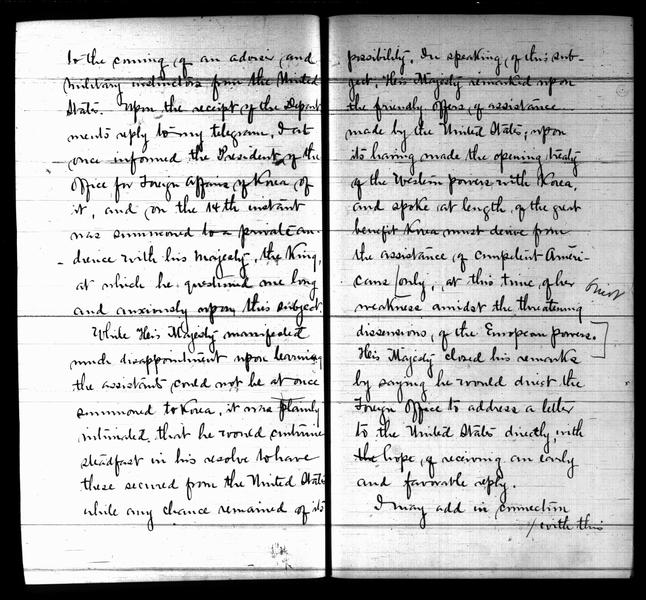 to the coming, of an adviser, and
military instructors from the United
States. Upon the receipt of the Depart-
ments reply to my telegram, I at
once informed the President, of the
Office for Foreign Affairs of Korea, of
it, and on the 14th instant
was summoned to a private au-
dience with his Majesty, the King,
at which he questioned me long
and anxiously upon this subject.
While His Majesty manifested
much disappointment upon learning
the assistants could not be at once
summoned to Korea, it was plainly
intimated that he would continue
steadfast in his resolve to have
these secured from the United States
while any chance remained of its
possibility. In speaking, of this sub-
ject, His Majesty remarked upon
the friendly offers, of assistance
made by the United States; upon
its having made the opening treaty
of the Western powers with Korea,
and spoke at length, of the great
benefit Korea must derive from
the assistance of competent Ameri-
cans [only, at this time, of her
weakness amidst the threatening
dissensions, of the European powers.]
His Majesty closed his remarks
by saying he would direct the
Foreign Office to address a letter
to the United States directly, with
the hope, of receiving an early
and favorable reply.
I may add in connection
with this